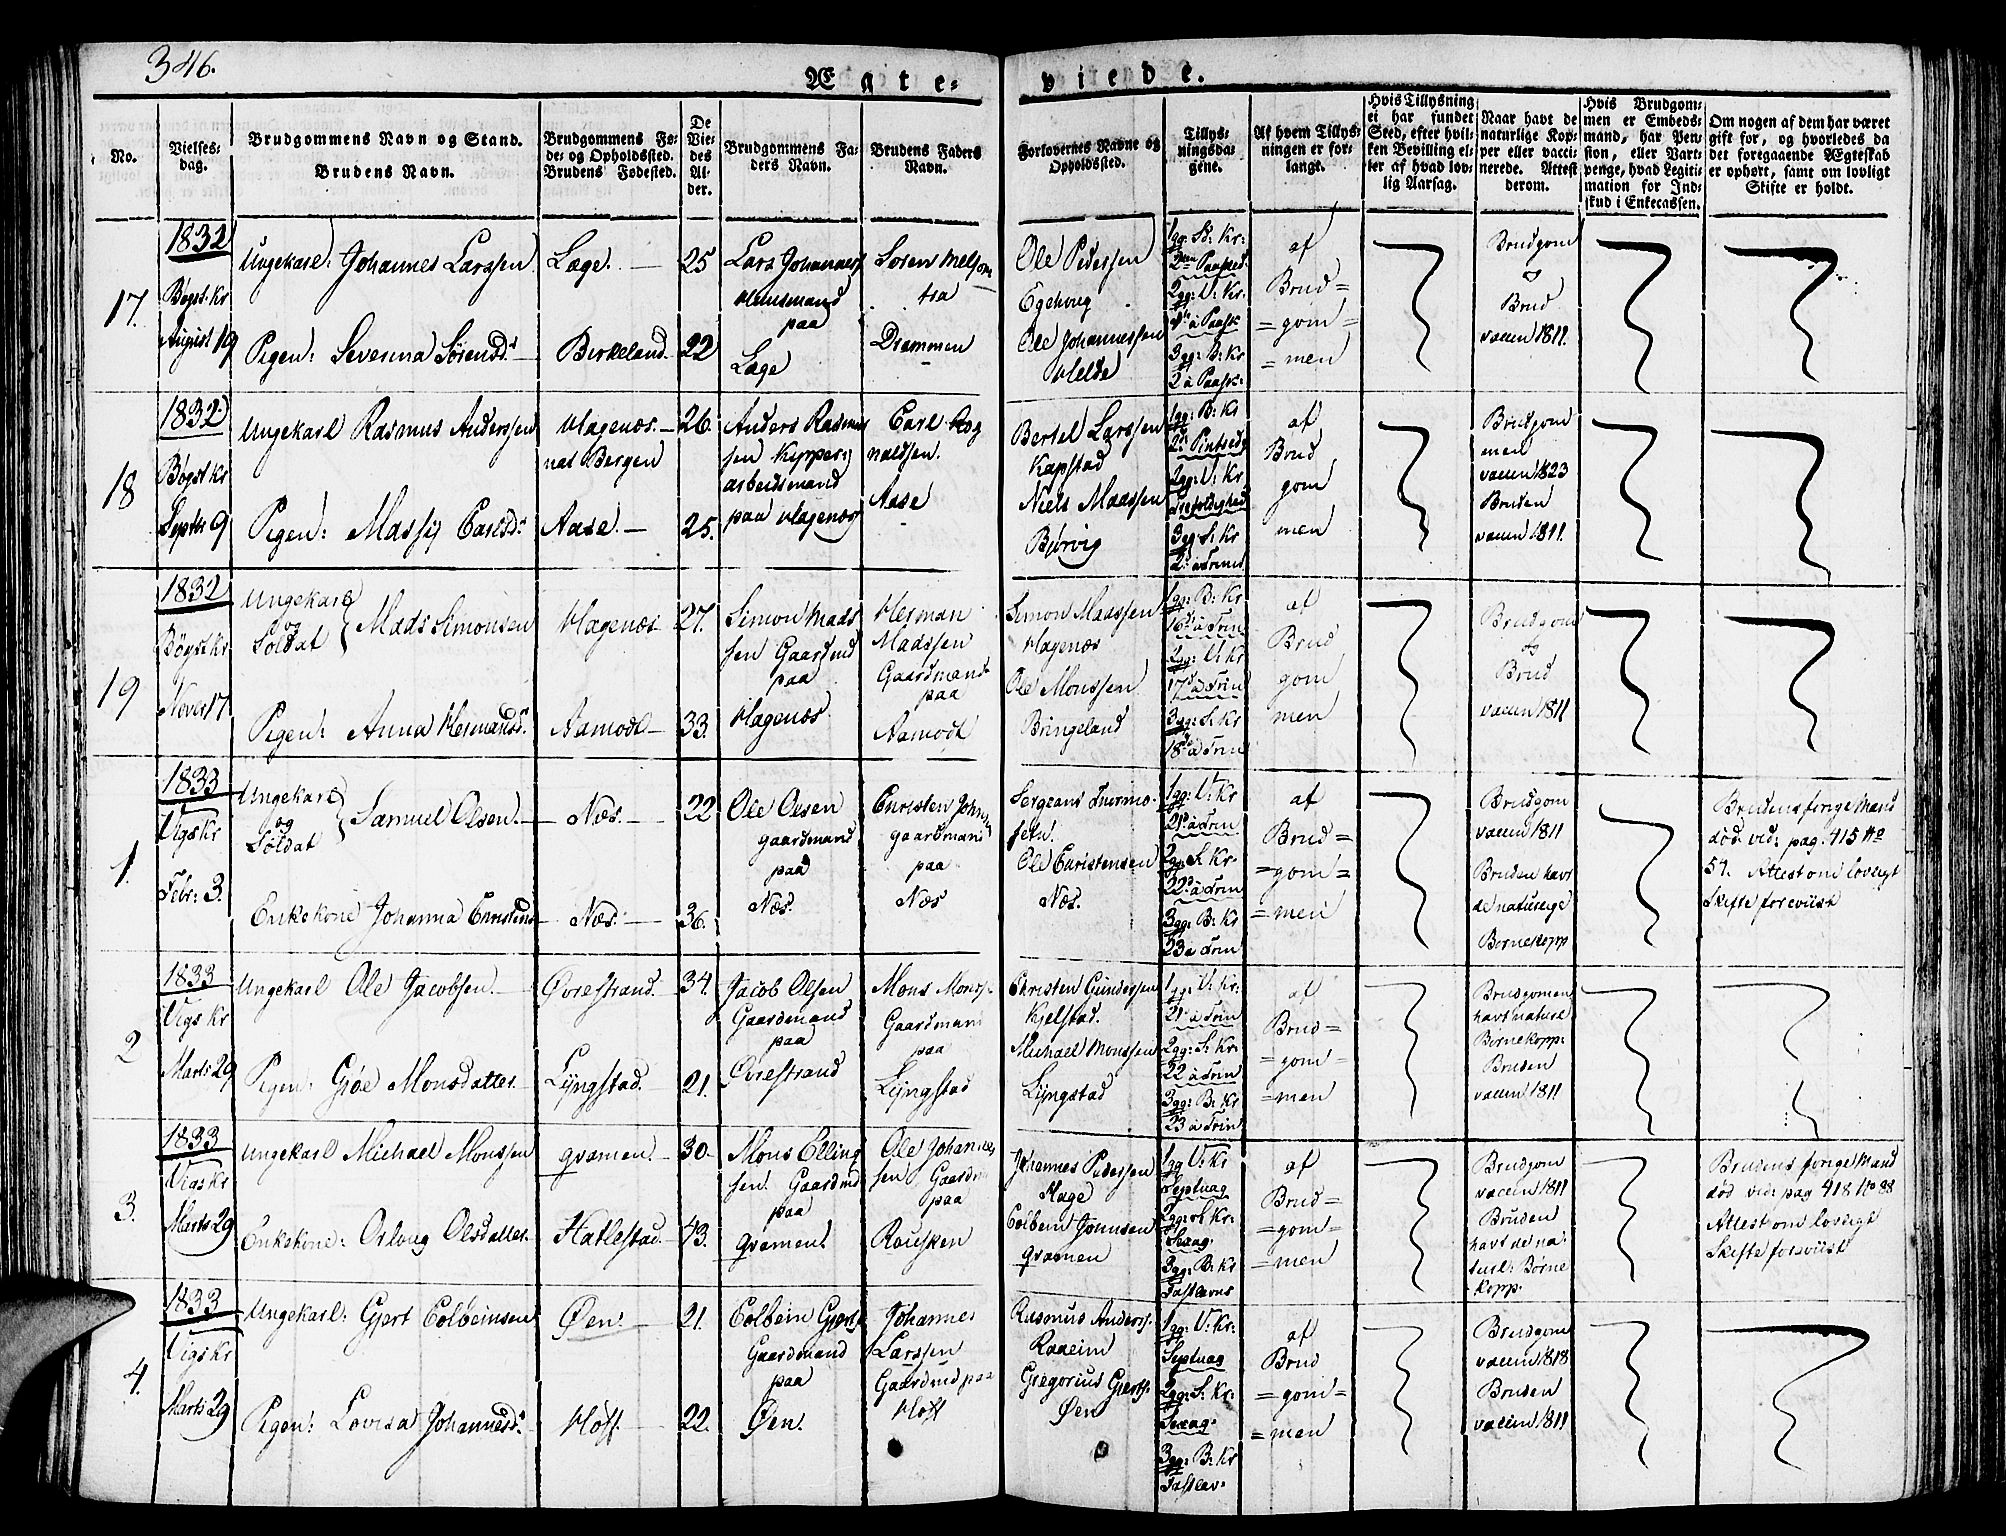 346.
Ægte-
viede.
No.
Vielses-
dag.
Brudgommens Navn og Stand.
Brudens Navn.
Brudgommens Fø-
de- og Opholdssted.
Brudens Fødested.
De
Vie-
des
Al-
der.
Brudgommens Fa-
ders Navn.
Brudens Faders
Navn.
Forlovernes Navne og
Opholdssted.
Tillys-
ningsda-
gene.
Af hvem Tillys-
ningen er for-
langt.
Hvis Tillysning
ei har fundet
Sted, efter hvil-
ken Bevilling el-
ler af hvad lov-
lig Aarsag.
Naar havt de
naturlige Kop-
per eller vacci-
nerede. Attest
derom.
Hvis Brudgom-
men er Embeds-
mand, har Pen-
sion, eller Vart-
penge, hvad Legiti-
mation for Ind-
skud i Enkecassen.
Om nogen af dem har været
gift for, og hvorledes da
det foregaaende Ægteskab
er ophørt, samt om lovligt
Skifte er holdt.
17.
1832
Bøgst. Kr
August 19
Ungekarl: Johannes Larssen
Pigen: Severina Sørensd:
Læge.
Birkeland
25
22
Lars Johannes
Huusmand
paa
Læge
Soren
fra
Drammen
Ole Pedersen
Egehoug
Ole Johannessen
Helde
1gg: B: Kr:
2den Paasked.
2gg: V: Kr.
1ste à Paask
3gg: B: Kr
2 à Paask:
af
Brud=
=gom=
=men
Brudgom
og
Brud
vaccn 1811.
18
1832
Bøgst Kr
Septbr 9
Ungekarl Rasmus Anderssen
Pigen: Massy Carlsd:
Hagenæs
nu i Bergen
Aase
26
25.
Anders Rasmus
sen Kipper=
arbeidsmand
paa Hagenæs
Carl Rog
naldsen.
Aase
Bertel Larssen
Kapstad
Niels Maassen
Bjørvig
1gg: B: Kr
2d. Pintsed
2gg: V: Kr
Trefoldighed
3gg: S: Kr
2d. à Trinit
af
Brud
gom
men
Brudgom
men
vaccn 1823
Bruden
vaccn 1811.
19
1832
Bøgst Kr
Novbr 17
Ungekarl
og
Soldat
Mads Simonsen
Pigen: Anna Hermansd:
Hagenæs
Aamodt
27.
33.
Simon Mads
sen Gaardmd
paa
Hagenæs
Herman
Madssen
Gaardmand
paa
Aamodt
Simon Maassen
Hagenæs
Ole Monssen
Bringeland
1gg: B: Kr
16d à Trin
2gg: V: Kr
17d à Trin
3gg: S: Kr
18d à Trin
af
Brud
gom
men
Brudgom
og
Brud
vaccn 1811
1.
1833
Vigs Kr
Febr: 3.
Ungekarl
og
Soldat
Samuel Olsen.
Enkekone Johanna Christensd
Næs.
Næs
22
36.
Ole Olsen
gaardmand
paa
Næs.
Christen Johan
gaardmand
paa
Næs
Sergeant Thormo-
sen.
Ole Christensen
Næs.
1gg: V: Kr
21d à Trin
2gg: S: Kr
22d à Trin
3gg: B: Kr
23 à Trin
af
Brud=
=gom=
=men
Brudgom
vaccn 1811
Bruden havt
de naturlige
Bornekopp
Brudens forige Mand
død. vid: pag. 415 No
51. Attest om lovligt
Skifte foreviist
2
1833
Vigs Kr
Marts 29
Ungekarl Ole Jacobsen.
Pigen: Gjøe Monsdatter
Øvrestrand.
Lÿngstad.
34.
21.
Jacob Olsen
Gaardmand
paa
Øvrestrand
Mons Monss-
Gaardmand
paa
Lÿngstad
Christen Gundersen
Kjelstad.
Michael Monssen
Lÿngstad
1gg: V: Kr:
21d à Trin
2gg: S: Kr:
22 à Trin
3gg: B: Kr
23 à Trin
af
Brud=
=gom=
=men
Brudgomen
havt naturl
Bornekopp:
Bruden
vaccn 1811
3.
1833
Vigs Kr
Marts 29
Ungekarl Michael Monssen
Enkekone: Oslaug Olsdatter
gvamen.
Hatlestad
30.
43.
Mons Elling
sen. Gaardmd
paa
gvamen.
Ole Johannes
sen Gaardm
paa
Rousken
Johannes Pedersen
Hage
Colbein Johnsen
gvamen
1gg V: Kr
Septuag
2gg: S: Kr:
Sexag.
3gg: B: Kr
Fastlavns
af
Brud=
=gom=
=men
Brudgom
vaccn 1811
Bruden
havt de na-
turl: Børne
kopp.
Brudens forige Mand
død vid: pag 418 No 88
Attest om lovligt
Skifte foreviist
4.
1833
Vigs Kr
Marts 29
Ungekarl: Gjert Colbeinsen
Pigen: Lovisa Johannesd:
Øen.
Hoff.
21.
22.
Colbein Gjerts
Gaardmand
paa
Øen.
Johannes
Larssen
Gaardmd paa
Hoff
Rasmus Anderss.
Raaeim
Gregorius Gjerts.
Øen
1gg: V: Kr:
Septuag
2gg: S: Kr:
Sexag:
3gg: B: Kr
Fastlav=
af
Brud
=gom=
=men
Brudgom
vaccn 1818
Bruden
vaccn 1811